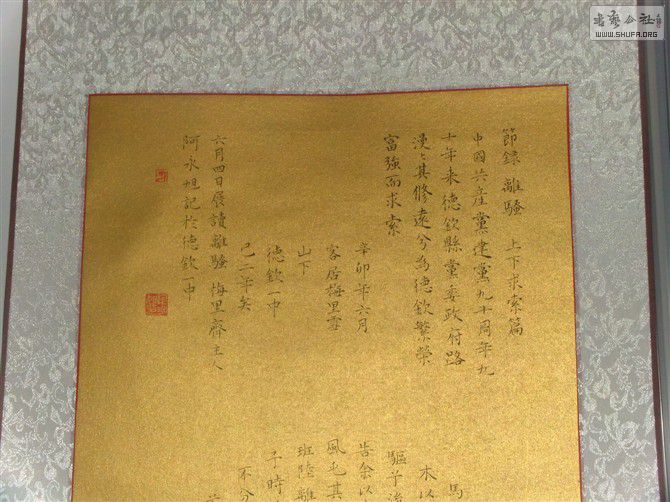 節錄 離騷 上下求索篇
中國共産黨建黨九十周年九
十年来德欽縣黨委政府路
漫〻其修遠兮為德欽繁榮
富強而求索
辛卯年六月
客居梅里雪
山下
德欽一中
已二年矣
六月四日展讀離騷 梅里齋主人
阿永旭記於德欽一中
馬
驅予
木以
告余以
風乇其
班陸離
子時
不分
書藝公社
WWW.SHUFA.ORG